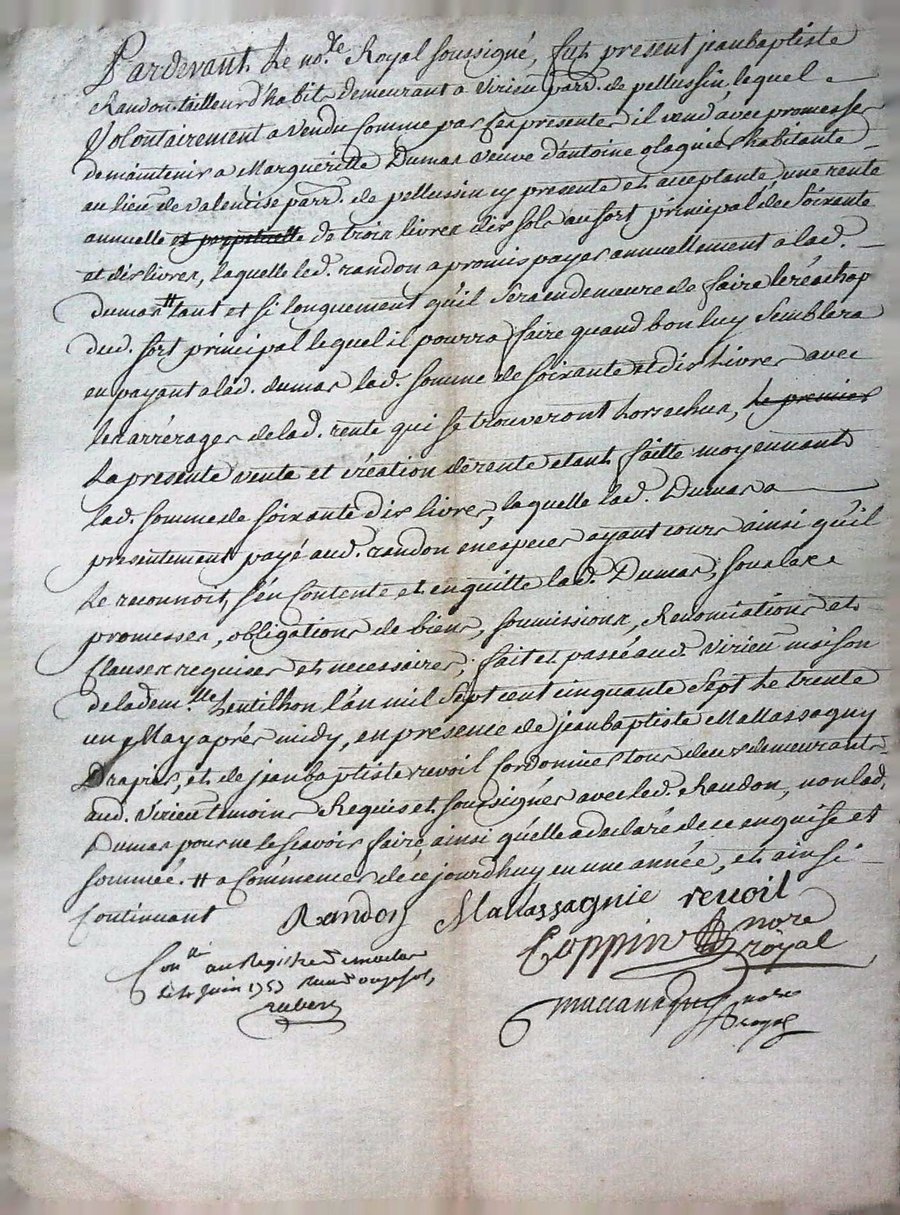 Pardevant Le no.re Royal soussigné, fut present jeanbaptiste
Randon tailleur d'habits demeurant a Virieu parr. de pellussin, lequel
Volontairement a vendu comme par ces presentes il vend avec promesses
de maintenir a Margueritte Dumas veuve d'antoine glagnier habitante
au lieu de valencise parr. de pellussin cy presente et acceptante une rente
annuelle et perpetuelle de trois livres dix sols au sort principal de soixante
et dix livres, laquelle led. randon a promis payer annuellement a lad.
dumas # tant et si longuement qu'il sera en demeure de faire le réachap
dud. sort principal lequel il pourra faire quand bon luy semblera
en payant a lad. dumas lad. somme de soixante et dix Livres avec
les arrérages de lad. rente qui se trouveront lors echus, Le premier
La presente vente et création de rente etant faitte moyennant
lad. somme de soixante dix livres, laquelle lad. Dumas a
presentement payé aud. randon en especes ayant cours ainsi qu'il
Le reconnoit, s'en contente et en quitte lad. Dumas, sous les
promesses, obligations de biens, soumissions, Renonciations et
Clauses requises et necessaires; fait et passé aud. Virieu maison
de la dem.lle Lentilhon l'an mil sept cent cinquante sept Le trente
un May aprés midy, en presence de jeanbaptiste Mallassagny
Drapier, et de jeanbaptiste revoil Cordonnier tous deux demeurants
aud. Virieu temoins Requis et soussignés avec led. Randon, non lad.
Dumas pour ne le scavoir faire ainsi qu'elle a declaré de ce enquise et
sommée. # a commencer de ce jourdhuy en une année, et ainsi
Continuant
Randon Mallassagnie revoil
Coppin nore royal
Con.lé au Registre
Le 4 juin 1757 Reçu douze sols,
aubert
nore royal